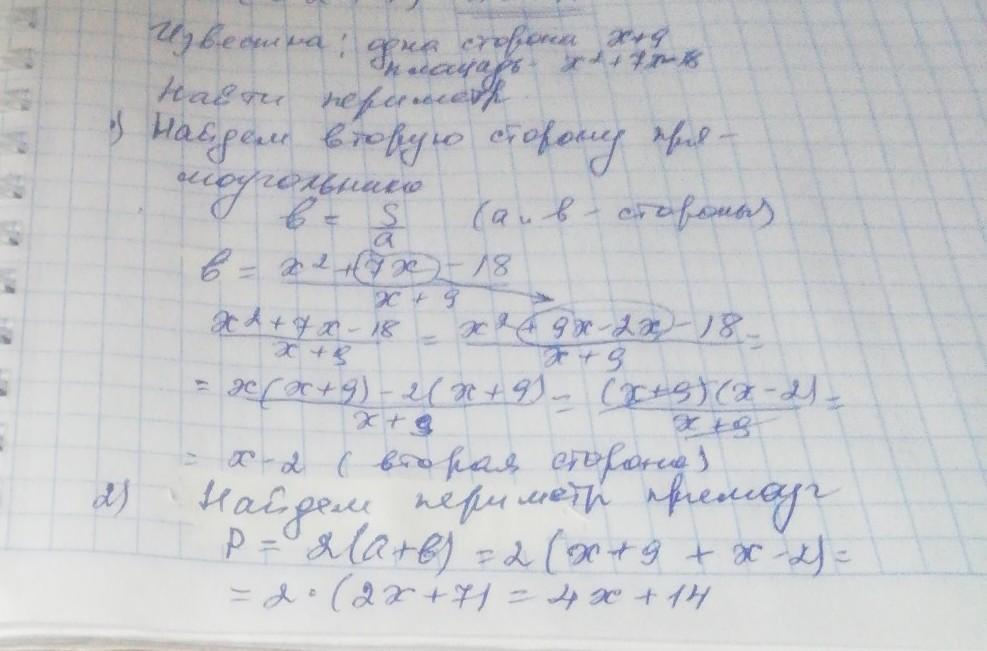 Известна: одна сторона x+9
площадь x²+7x-18
Найти периметр
1) Найдем вторую сторону пря-
моугольника
в = S/a (а и в - стороны)
в = (x²+7x-18)/(x+9)
(x²+7x-18)/(x+9) = (x²+9x-2x-18)/(x+9) =
= (x(x+9)-2(x+9))/(x+9) = ((x+9)(x-2))/(x+9) =
= x-2 (вторая сторона)
2) Найдем периметр прямоуг
P = 2(a+в) = 2(x+9+x-2) =
= 2·(2x+7) = 4x+14